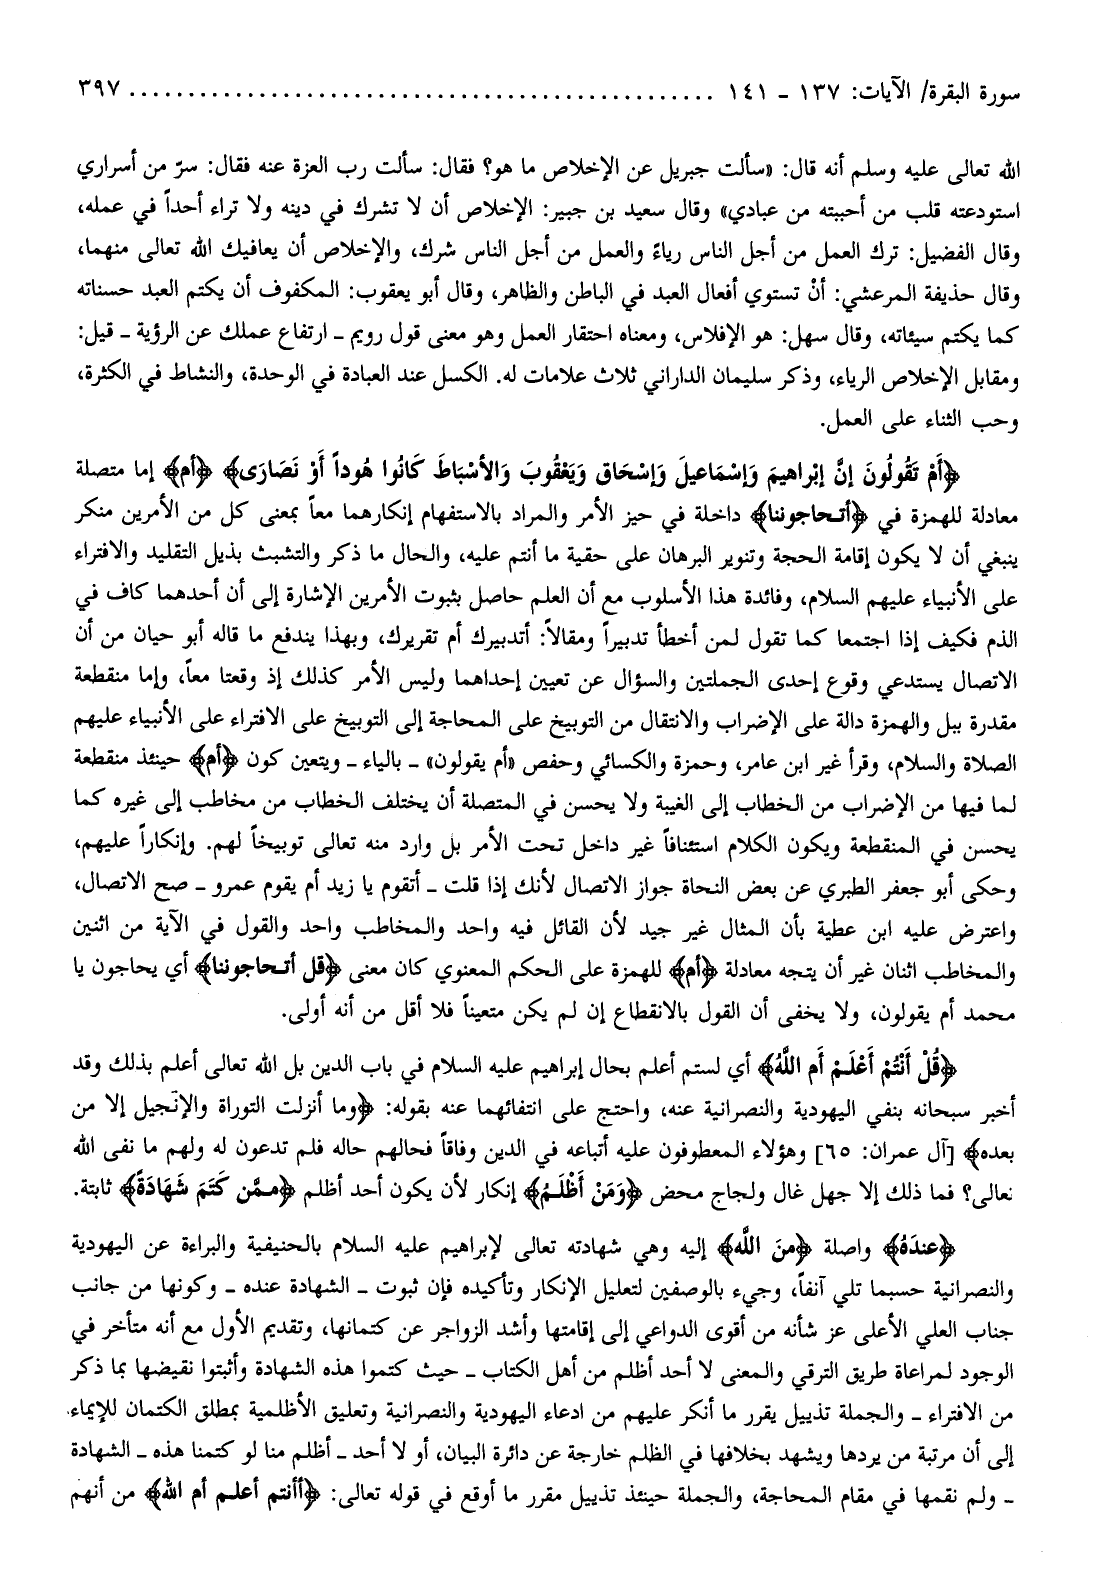 سورة البقرة/ الآيات: ١٣٧ - ١٤١ ................................................ ٣٩٧
الله تعالى عليه وسلم أنه قال: «سألت جبريل عن الإخلاص ما هو؟ فقال: سألت رب العزة عنه فقال: سرّ من أسراري
استودعته قلب من أحببته من عبادي» وقال سعيد بن جبير: الإخلاص أن لا تشرك في دينه ولا تراء أحداً في عمله،
وقال الفضيل: ترك العمل من أجل الناس رياءً والعمل من أجل الناس شرك، والإخلاص أن يعافيك الله تعالى منهما،
وقال حذيفة المرعشي: أنْ تستوي أفعال العبد في الباطن والظاهر، وقال أبو يعقوب: المكفوف أن يكتم العبد حسناته
كما يكتم سيئاته، وقال سهل: هو الإفلاس، ومعناه احتقار العمل وهو معنى قول رويم ـ ارتفاع عملك عن الرؤية ـ قيل:
ومقابل الإخلاص الرياء، وذكر سليمان الداراني ثلاث علامات له. الكسل عند العبادة في الوحدة، والنشاط في الكثرة،
وحب الثناء على العمل.
﴿أَمْ تَقُولُونَ إِنَّ إِبْراهيمَ وَإِسْمَاعيلَ وَإِسْحَاق وَيَعْقُوبَ وَالأسْبَاطَ كَانُوا هُوداً أَوْ نَصَارَى﴾ ﴿أم﴾ إما متصلة
معادلة للهمزة في ﴿أتحاجوننا﴾ داخلة في حيز الأمر والمراد بالاستفهام إنكارهما معاً بمعنى كل من الأمرين منكر
ينبغي أن لا يكون إقامة الحجة وتنوير البرهان على حقية ما أنتم عليه، والحال ما ذكر والتشبث بذيل التقليد والافتراء
على الأنبياء عليهم السلام، وفائدة هذا الأسلوب مع أن العلم حاصل بثبوت الأمرين الإشارة إلى أن أحدهما كاف في
الذم فكيف إذا اجتمعا كما تقول لمن أخطأ تدبيراً ومقالاً: أتدبيرك أم تقريرك، وبهذا يندفع ما قاله أبو حيان من أن
الاتصال يستدعي وقوع إحدى الجملتين والسؤال عن تعيين إحداهما وليس الأمر كذلك إذ وقعتا معاً، وإما منقطعة
مقدرة ببل والهمزة دالة على الإضراب والانتقال من التوبيخ على المحاجة إلى التوبيخ على الافتراء على الأنبياء عليهم
الصلاة والسلام، وقرأ غير ابن عامر، وحمزة والكسائي وحفص «أم يقولون» ـ بالياء ـ ويتعين كون ﴿أم﴾ حينئذ منقطعة
لما فيها من الإضراب من الخطاب إلى الغيبة ولا يحسن في المتصلة أن يختلف الخطاب من مخاطب إلى غيره كما
يحسن في المنقطعة ويكون الكلام استئنافاً غير داخل تحت الأمر بل وارد منه تعالى توبيخاً لهم. وإنكاراً عليهم،
وحكى أبو جعفر الطبري عن بعض النحاة جواز الاتصال لأنك إذا قلت ـ أتقوم يا زيد أم يقوم عمرو ـ صح الاتصال،
واعترض عليه ابن عطية بأن المثال غير جيد لأن القائل فيه واحد والمخاطب واحد والقول في الآية من اثنين
والمخاطب اثنان غير أن يتجه معادلة ﴿أم﴾ للهمزة على الحكم المعنوي كان معنى ﴿قل أتحاجوننا﴾ أي يحاجون يا
محمد أم يقولون، ولا يخفى أن القول بالانقطاع إن لم يكن متعيناً فلا أقل من أنه أولى.
﴿قُلْ أَنْتُمْ أَعْلَمْ أم اللَّهُ﴾ أي لستم أعلم بحال إبراهيم عليه السلام في باب الدين بل الله تعالى أعلم بذلك وقد
أخبر سبحانه بنفي اليهودية والنصرانية عنه، واحتج على انتفائهما عنه بقوله: ﴿وما أنزلت التوراة والإنجيل إلا من
بعده﴾ [آل عمران: ٦٥] وهؤلاء المعطوفون عليه أتباعه في الدين وفاقاً فحالهم حاله فلم تدعون له ولهم ما نفى الله
تعالى؟ فما ذلك إلا جهل غال ولجاج محض ﴿وَمَنْ أَظْلَمُ﴾ إنكار لأن يكون أحد أظلم ﴿ممَّن كَتَمَ شَهَادَةً﴾ ثابتة.
﴿عندَهُ﴾ واصلة ﴿منَ اللَّه﴾ إليه وهي شهادته تعالى لإبراهيم عليه السلام بالحنيفية والبراءة عن اليهودية
والنصرانية حسبما تلي آنفاً، وجيء بالوصفين لتعليل الإنكار وتأكيده فإن ثبوت ـ الشهادة عنده ـ وكونها من جانب
جناب العلي الأعلى عز شأنه من أقوى الدواعي إلى إقامتها وأشد الزواجر عن كتمانها، وتقديم الأول مع أنه متأخر في
الوجود لمراعاة طريق الترقي والمعنى لا أحد أظلم من أهل الكتاب ـ حيث كتموا هذه الشهادة وأثبتوا نقيضها بما ذكر
من الافتراء ـ والجملة تذييل يقرر ما أنكر عليهم من ادعاء اليهودية والنصرانية وتعليق الأظلمية بمطلق الكتمان للإيماء
إلى أن مرتبة من يردها ويشهد بخلافها في الظلم خارجة عن دائرة البيان، أو لا أحد ـ أظلم منا لو كتمنا هذه ـ الشهادة
ـ ولم نقمها في مقام المحاجة، والجملة حينئذ تذييل مقرر ما أوقع في قوله تعالى: ﴿أأنتم أعلم أم الله﴾ من أنهم